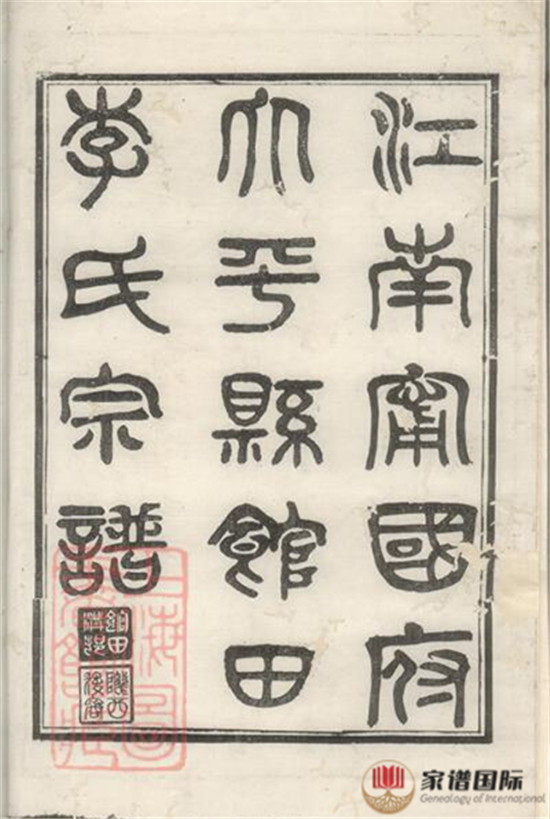 江南甯國府
太平縣館田
李氏宗譜
館田
隴西
後海
上海圖
家谱国际
Genealogy of International